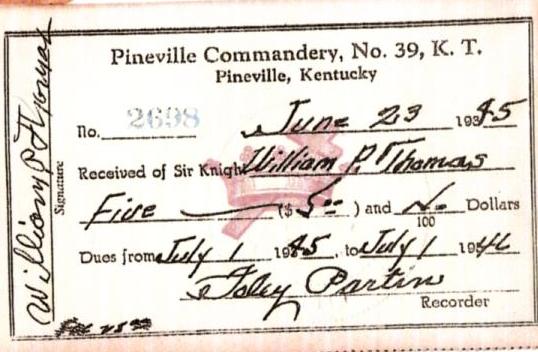 Pineville Commandery, No. 39, K. T.
Pineville, Kentucky
No. 2698 June 23 1945
Received of Sir Knight William P. Thomas
Five ($ 5 00) and No/100 Dollars
Dues from July 1 1945, to July 1 1946
Foley Partin
Recorder
William P Thomas
Signature